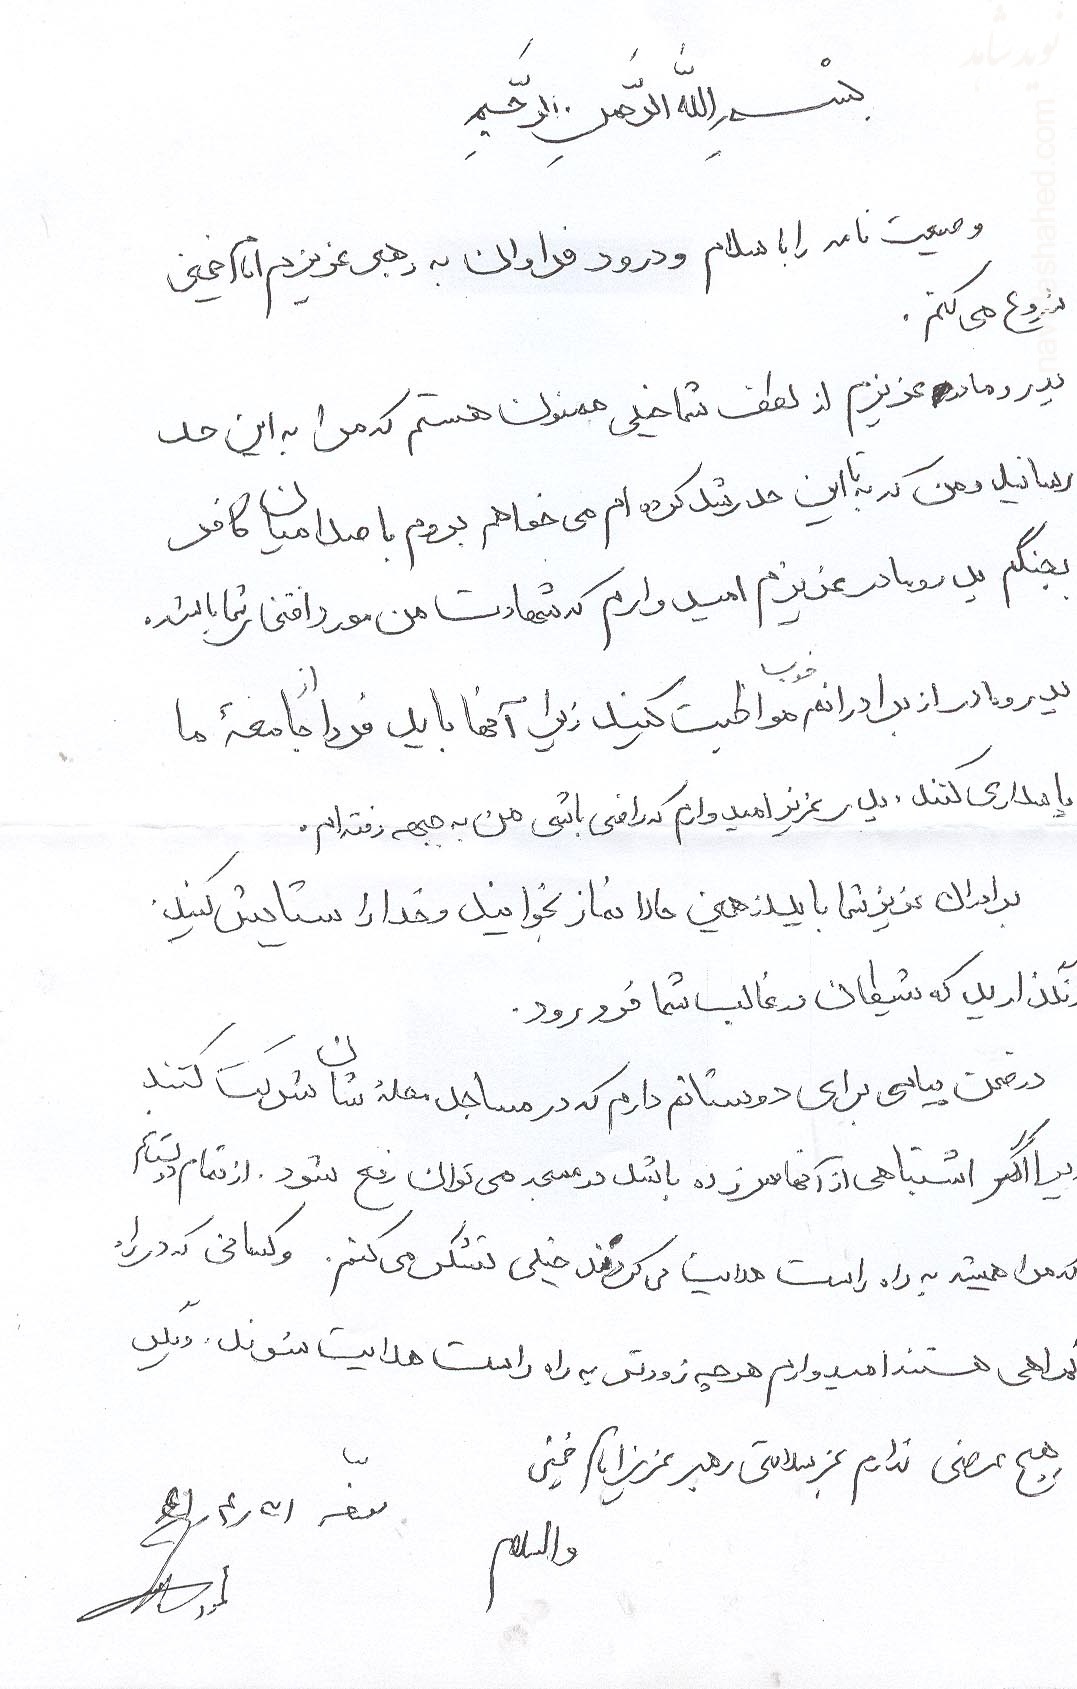 بِسْمِ اللهِ الرَّحمنِ الرَّحیمِ
وصیت نامه را با سلام و درود فراوان به رهبر عزیزم امام خمینی
شروع می کنم .
پدر و مادر عزیزم از لطف شما خیلی ممنون هستم که مرا به این حد
رساندید و من که به تا این حد رشد کرده ام می خواهم بروم با صدامیان کافر
بجنگم پدر و مادر عزیزم امید وارم که شهادت من مورد افتخار شما باشد .
پدر و مادر از برادرانم خوب مواظبت کنید زیرا آنها باید فردا از جامعهٔ ما
پاسداری کنند . پدر عزیز امیدوارم که راضی باشی من به جبهه رفته ام .
برادران عزیز شما باید از همین حالا نماز بخوانید و خدا را ستایش کنید .
و نگذارید که شیطان در غالب شما فرو رود .
در ضمن پیامی برای دوستانم دارم که در مساجد محلهٔ شان شرکت کنند
زیرا اگر اشتباهی از آنها سر زده باشد در مسجد می توان رفع شود . از تمام دوستانم
که مرا همیشه به راه راست هدایت می کردند خیلی تشکر می کنم . و کسانی که در راه
گمراهی هستند امیدوارم هر چه زودتر به راه راست هدایت شوند . دیگر
هیچ عرضی ندارم بجز سلامتی رهبر عزیز امام خمینی
والسلام
نوید شاهد
navideshahed.com